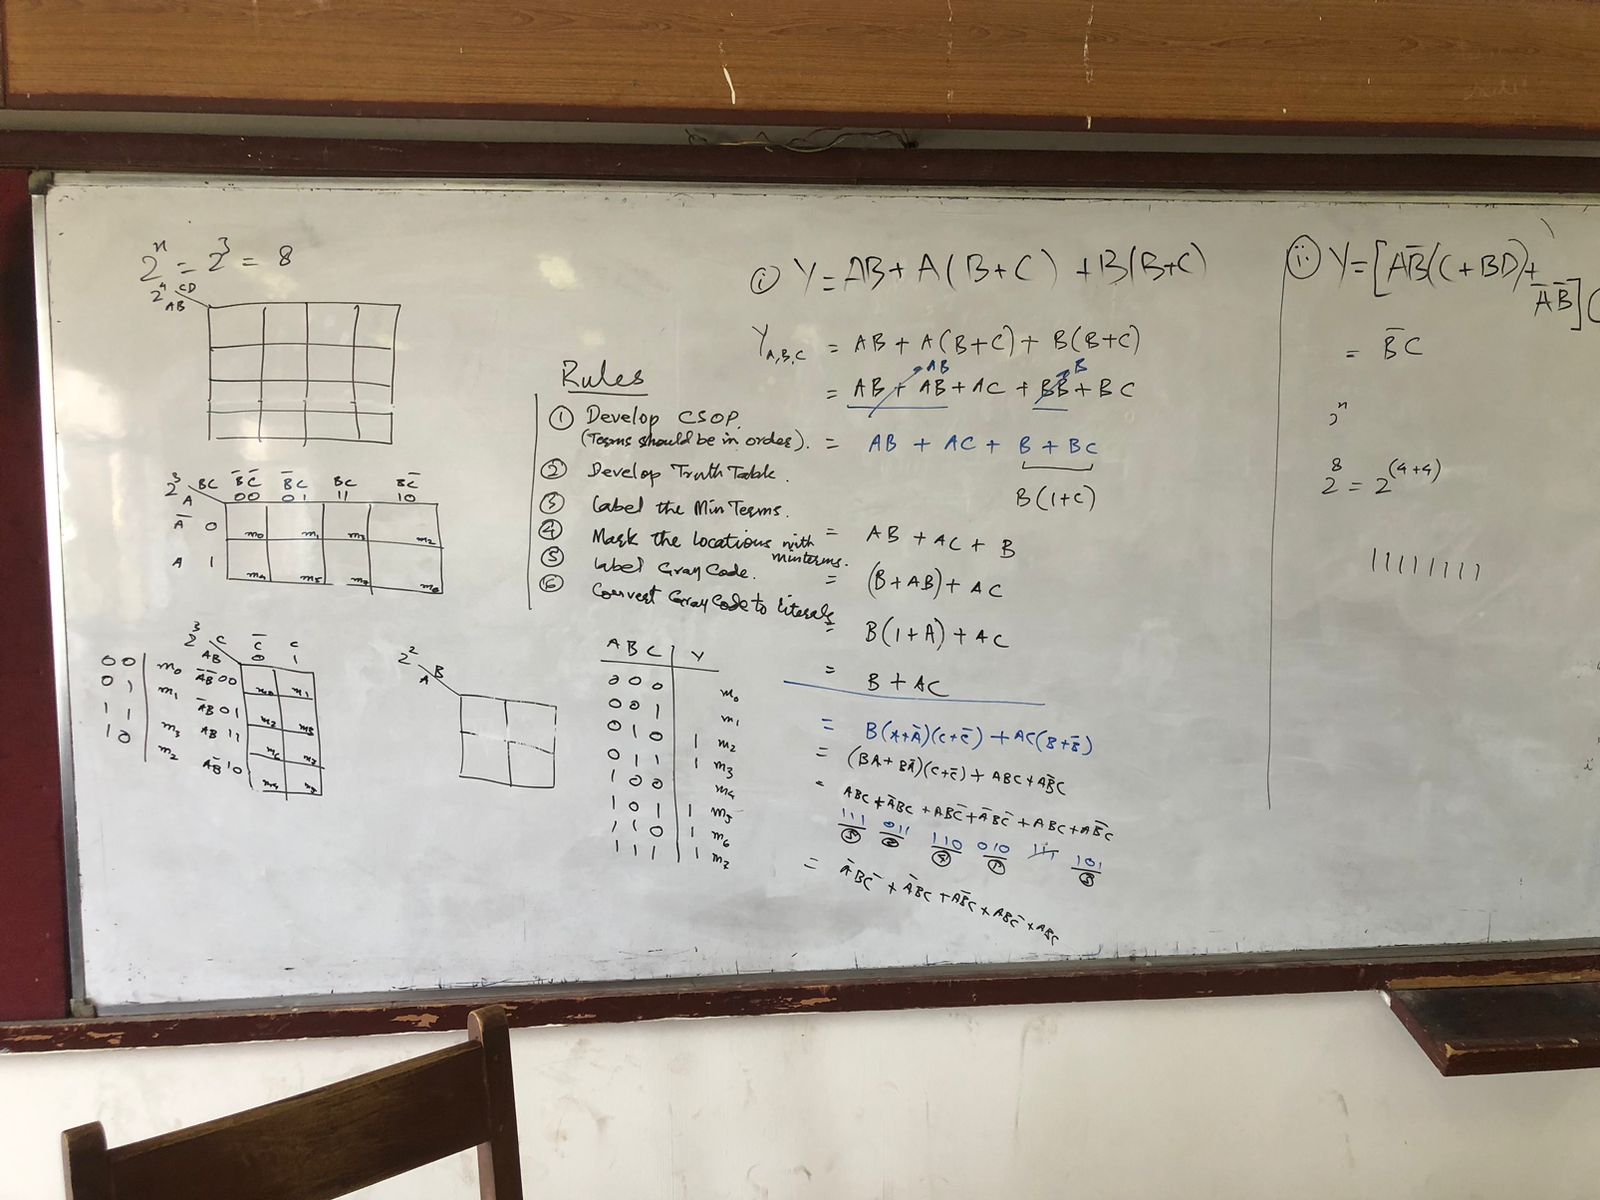 2ⁿ = 2³ = 8
2⁴ CD
AB
2³ BC B̅C̅ B̅C BC BC̅
A 00 01 11 10
A̅ 0 m₀ m₁ m₃ m₂
A 1 m₄ m₅ m₇ m₆
2³ C C̅ C
AB 0 1
00 m₀ A̅B̅ 00 m₀ m₁
01 m₁ A̅B 01 m₂ m₃
11 m₃ AB 11 m₆ m₇
10 m₂ AB̅ 10 m₄ m₅
2² B
A
Rules
① Develop CSOP.
(Terms should be in order).
② Develop Truth Table.
③ Label the Min Terms.
④ Mark the locations with
minterms.
⑤ Label Gray Code.
⑥ Convert Gray Code to literals
A B C Y
0 0 0 m₀
0 0 1 m₁
0 1 0 1 m₂
0 1 1 1 m₃
1 0 0 m₄
1 0 1 1 m₅
1 1 0 1 m₆
1 1 1 1 m₇
ⓘ Y = AB + A(B+C) + B(B+C)
Y A,B,C = AB + A(B+C) + B(B+C)
AB B
= AB + AB + AC + BB + BC
= AB + AC + B + BC
B(1+C)
= AB + AC + B
= (B+AB) + AC
= B(1+A) + AC
= B + AC
= B(A+A̅)(C+C̅) + AC(B+B̅)
= (BA + BA̅)(C+C̅) + ABC + AB̅C
= ABC + A̅BC + ABC̅ + A̅BC̅ + ABC + AB̅C
111 011 110 010 111 101
⑤ ② ④ ① ③
= A̅BC̅ + A̅BC + AB̅C + ABC̅ + ABC
ii Y = [AB̅(C + BD) +
A̅B̅]
= B̅C
2⁸ = 2⁽⁴⁺⁴⁾
11111111